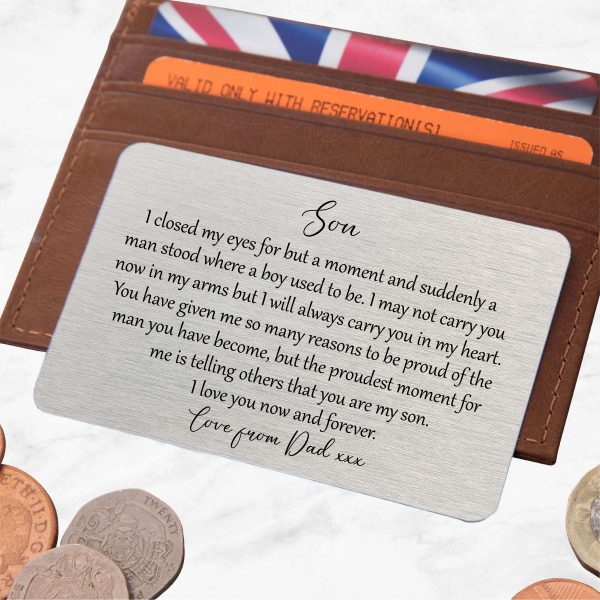 VALID ONLY WITH RESERVATION[S]
ISSUED AS
Son
I closed my eyes for but a moment and suddenly a
man stood where a boy used to be. I may not carry you
now in my arms but I will always carry you in my heart.
You have given me so many reasons to be proud of the
man you have become, but the proudest moment for
me is telling others that you are my son.
I love you now and forever.
Love from Dad xxx
ETH·II·D·G
TWENTY